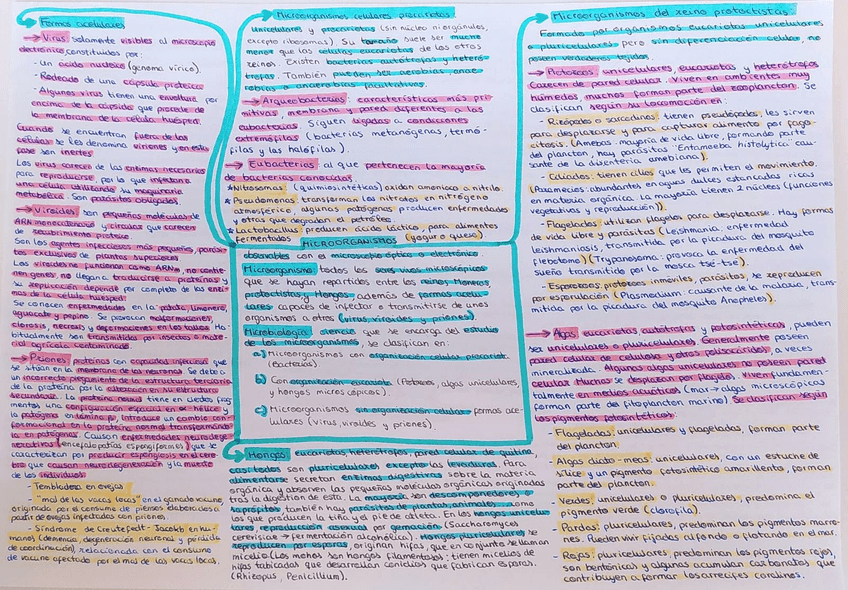 Formas acelulares
→ Virus: solamente visibles al microscopio
electrónico, constituidos por:
- Un ácido nucleico (genoma vírico).
- Rodeado de una cápsula proteica
- Algunos virus tienen una envoltura por
encima de la cápsida que procede de
la membrana de la célula huésped.
Cuando se encuentran fuera de las
células se les denomina viriones y en esta
fase son inertes
Los virus carecen de las enzimas necesarias
para reproducirse por lo que infectan a
una célula utilizando su maquinaria
metabólica. Son parásitos obligados
→ Viroides: son pequeñas moléculas de
ARN monocatenario y circular que carecen
de recubrimiento proteico
Son los agentes infecciosos más pequeños, parási-
tos exclusivos de plantas superiores
Los viroides no funcionan como ARNm, no contie-
nen genes, no llegan a traducirse a proteínas y
su replicación depende por completo de las enzi-
mas de la célula huésped.
Se conocen enfermedades en la patata, limonero,
aguacate y pepino. Se provocan malformaciones,
clorosis, necrosis y deformaciones en los tallos. Ha-
bitualmente son transmitidos por insectos o mate-
rial agrícola contaminado
→ Priones: proteínas con capacidad infectiva que
se sitúan en la membrana de las neuronas. Se debe a
un incorrecto plegamiento de la estructura terciaria
de la proteína por la alteración en su estructura
secundaria. La proteína normal tiene en ciertos frag-
mentos una configuración espacial en α-hélice y
la patógena en lámina β, introduce un cambio con-
formacional en la proteína normal transformándo-
la en patógena. Causan enfermedades neurodege-
nerativas (encefalopatías espongiformes) que se
caracterizan por producir espongiosis en el cere-
bro que causan neurodegeneración y la muerte
de los individuos:
- Tembladera en ovejas
- "mal de las vacas locas" en el ganado vacuno,
originada por el consumo de piensos elaborados a
partir de ovejas infectadas con priones.
- Síndrome de Creutzfeldt-Jacob (en hu-
manos) (demencia, degeneración neuronal y pérdida
de coordinación) relacionada con el consumo
de vacuno afectado por el mal de las vacas locas.
Microorganismos celulares procariotas:
Unicelulares y procariotas (sin núcleo ni orgánulos,
excepto ribosomas). Su tamaño suele ser mucho
menor que las células eucariotas de los otros
reinos. Existen bacterias autótrofas y heteró-
trofas. También pueden ser aerobias, anae-
robias o anaerobias facultativas.
→ Arqueobacterias: características más pri-
mitivas, membrana y pared diferentes a las
eubacterias. Siguen ligadas a condiciones
extremófilas (bacterias metanógenas, termó-
filas y las halófilas).
→ Eubacterias: al que pertenecen la mayoría
de bacterias conocidas
★ Nitrosomas (quimiosintéticos) oxidan amoniaco a nitrilo.
★ Pseudomonas: transforman los nitratos en nitrógeno
atmosférico, algunas patógenas producen enfermedades
y otras que degradan el petróleo
★ Lactobacillus producen ácido láctico, para alimentos
fermentados (yogur o queso)
MICROORGANISMOS
observables con el microscopio óptico o electrónico
Microorganismo: todos los seres vivos microscópicos
que se hayan repartidos entre los reinos Moneras
protoctistas y Hongos, además de formas acelu-
lares capaces de infectar o transmitirse de unos
organismos a otros (virus, viroides y priones).
Microbiología: ciencia que se encarga del estudio
de los microorganismos, se clasifican en:
a) Microorganismos con organización celular procariota.
(Bacterias).
b) Con organización eucariota (Protozoos, algas unicelulares,
y hongos microscópicos).
c) Microorganismos sin organización celular: formas ace-
lulares (virus, viroides y priones).
Hongos: eucariotas, heterótrofos, pared celular de quitina,
casi todos son pluricelulares excepto las levaduras. Para
alimentarse secretan enzimas digestivas sobre la materia
orgánica y absorben las pequeñas moléculas orgánicas originadas
tras la digestión de esta. La mayoría son descomponedores o
saprófitos, también hay parásitos de plantas, animales, como
los que producen la tiña y el pie de atleta. En los hongos unicelu-
lares reproducción asexual por gemación (Saccharomyces
cerevisiae → fermentación alcohólica). Hongos pluricelulares se
reproducen por esporas, originan hifas, que en conjunto se llaman
micelio (Los mohos son hongos filamentosos: tienen micelios de
hifas tabicadas que desarrollan conidios que fabrican esporas.
(Rhizopus, Penicillium).
Microorganismos del reino protoctistas:
Formado por organismos eucariotas unicelulares
o pluricelulares, pero sin diferenciación celular, no
poseen verdaderos tejidos.
→ Protozoos: unicelulares, eucariotas y heterótrofos
Carecen de pared celular. Viven en ambientes muy
húmedos, marinos forman parte del zooplancton. Se
clasifican según su locomoción en:
- Rizópodos o sarcodinos: tienen pseudópodos, les sirven
para desplazarse y para capturar alimento por fago-
citosis. (Amebas: mayoría de vida libre, formando parte
del plancton, hay parásitas "Entamoeba histolytica" cau-
sante de la disentería amebiana).
- Ciliados: tienen cilios que les permiten el movimiento.
(Paramecios: abundantes en aguas dulces estancadas ricas
en materia orgánica. La mayoría tienen 2 núcleos (funciones
vegetativas y reproducción)).
- Flagelados: utilizan flagelos para desplazarse. Hay formas
de vida libre y parásitas (Leishmania: enfermedad
leishmaniosis, transmitida por la picadura del mosquito
flebotomo) (Trypanosoma: provoca la enfermedad del
sueño transmitida por la mosca tsé-tsé).
- Esporozoos: protozoos inmóviles, parásitos, se reproducen
por esporulación (Plasmodium: causante de la malaria, trans-
mitida por la picadura del mosquito Anopheles).
→ Algas: eucariotas, autótrofas y fotosintéticas, pueden
ser unicelulares o pluricelulares. Generalmente poseen
pared celular de celulosa y otros polisacáridos, a veces
mineralizada. Algunas algas unicelulares no poseen pared
celular. Muchas se desplazan por flagelos. Viven fundamen-
talmente en medios acuáticos (mar → algas microscópicas
forman parte de fitoplancton marino). Se clasifican según
los pigmentos fotosintéticos:
- Flageladas: unicelulares y flageladas, forman parte
del plancton.
- Algas diatomeas: unicelulares, con un estuche de
sílice y un pigmento fotosintético amarillento, forman
parte del plancton.
- Verdes: unicelulares o pluricelulares, predomina el
pigmento verde (clorofila).
- Pardas: pluricelulares, predominan los pigmentos marro-
nes. Pueden vivir fijadas al fondo o flotando en el mar.
- Rojas: pluricelulares, predominan los pigmentos rojos,
son bentónicas y algunas acumulan carbonatos que
contribuyen a formar los arrecifes coralinos.